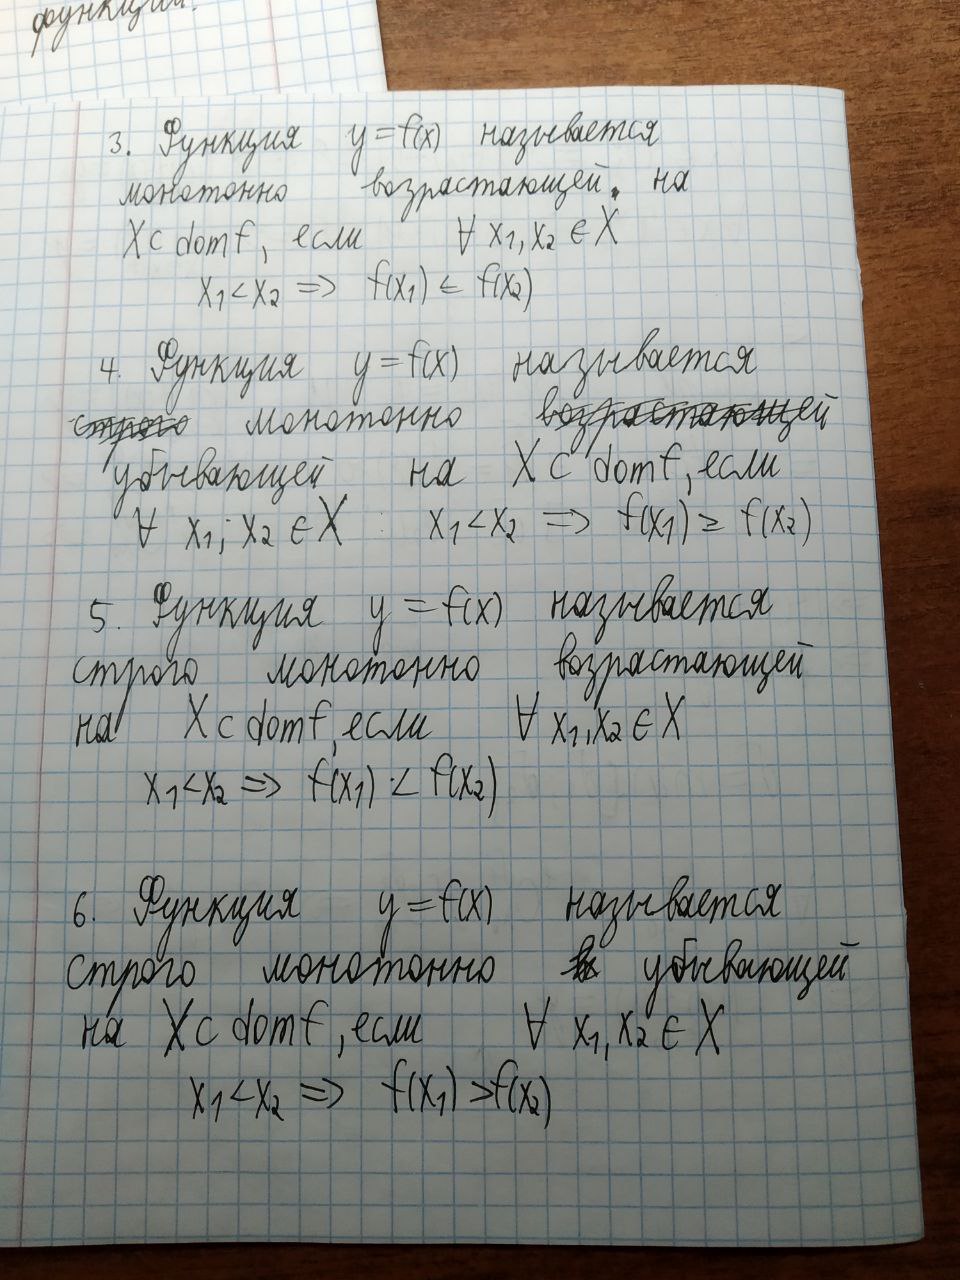 функции.
3. Функция y = f(x) называется
монотонно возрастающей. на
X ⊂ dom f, если ∀ x₁, x₂ ∈ X
x₁ < x₂ => f(x₁) ≤ f(x₂)
4. Функция y = f(x) называется
строго монотонно возрастающей
убывающей на X ⊂ dom f, если
∀ x₁; x₂ ∈ X : x₁ < x₂ => f(x₁) ≥ f(x₂)
5. Функция y = f(x) называется
строго монотонно возрастающей
на X ⊂ dom f, если ∀ x₁, x₂ ∈ X
x₁ < x₂ => f(x₁) < f(x₂)
6. Функция y = f(x) называется
строго монотонно убывающей
на X ⊂ dom f, если ∀ x₁, x₂ ∈ X
x₁ < x₂ => f(x₁) > f(x₂)